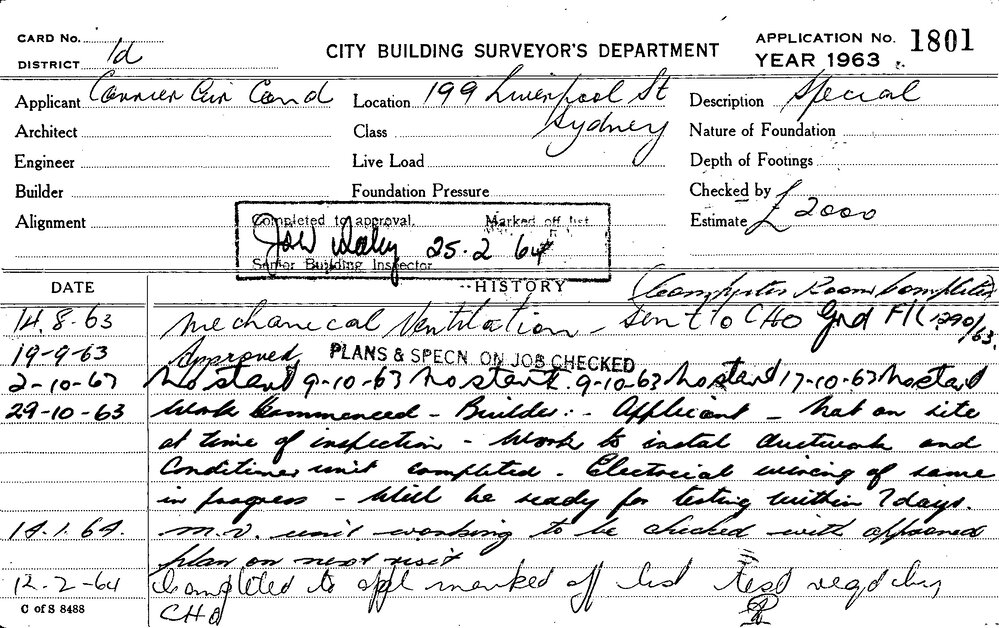 CARD No.
DISTRICT 1d
CITY BUILDING SURVEYOR'S DEPARTMENT
APPLICATION No. 1801
YEAR 1963
Applicant Carrier Air Cond
Location 199 Liverpool St
Sydney
Description Special
Architect
Class
Nature of Foundation
Engineer
Live Load
Depth of Footings
Builder
Foundation Pressure
Checked by
Alignment
Estimate £2000
Completed to approval. Marked off list
25.2 64
Senior Building Inspector
DATE
HISTORY
Computer Room Completed
14.8-63 Mechanical Ventilation - Sent to CHO Gnd Flr 1290/63.
19-9-63 Approved PLANS & SPECN. ON JOB CHECKED
2-10-63 No start 9-10-63 No start. 9-10-63 No start 17-10-63 No start
29-10-63 Work Commenced - Builder:- Applicant - Not on site
at time of inspection - Work to instal ductwork and
Conditioner unit completed. Electrical wiring of same
in progress - Will be ready for testing within 7 days.
14.1.64. M.V. unit working to be checked with approved
plan on next visit
12-2-64 Completed to appl marked off list test reqd by
CHO
C of S 8488